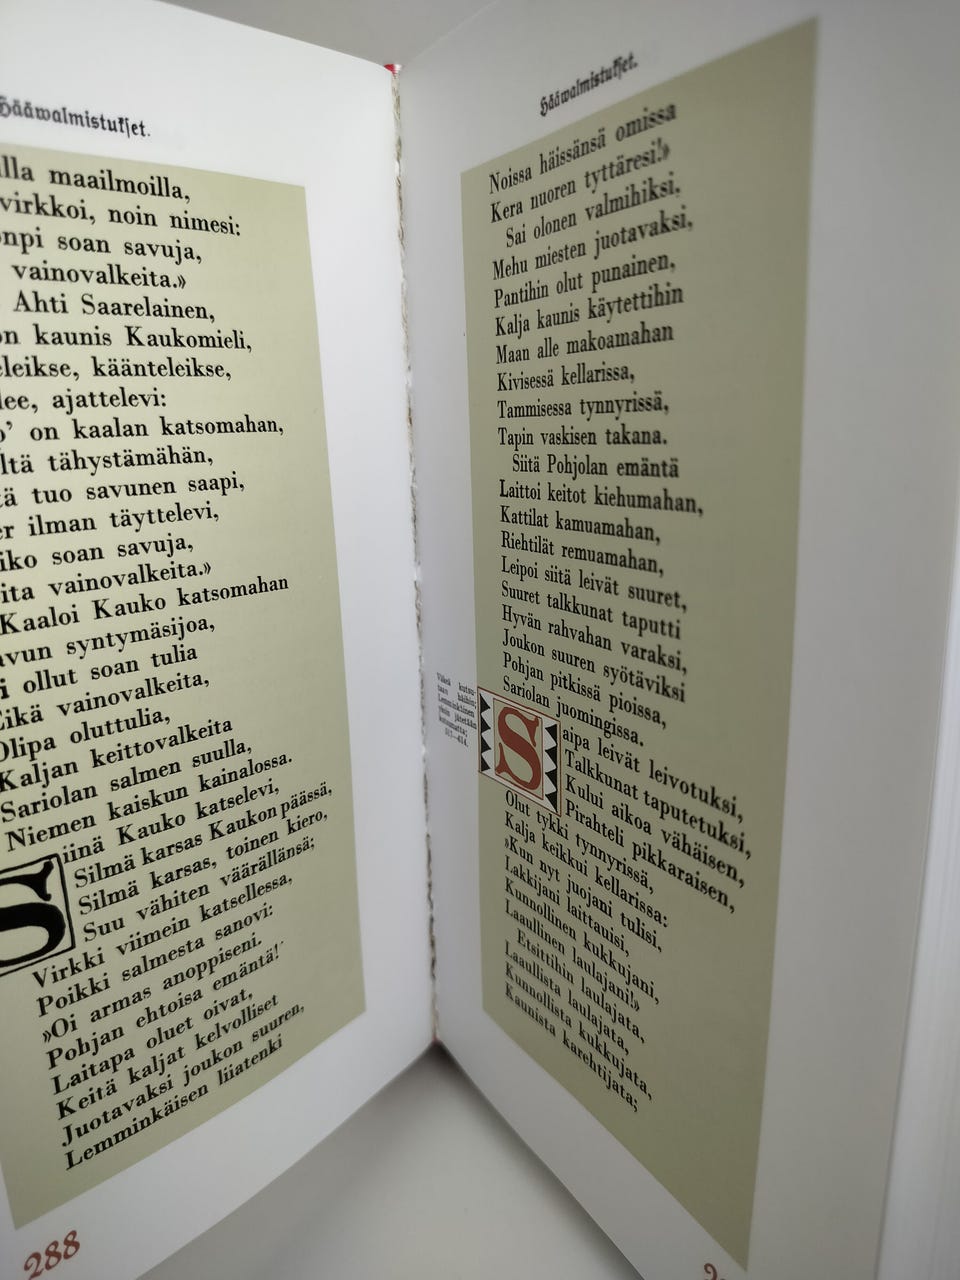 Hääwalmistukset.
maailmoilla,
virkkoi, noin nimesi:
soan savuja,
vainovalkeita.»
Ahti Saarelainen,
kaunis Kaukomieli,
käänteleikse,
ajattelevi:
on kaalan katsomahan,
tähystämähän,
tuo savunen saapi,
ilman täyttelevi,
soan savuja,
vainovalkeita.»
Kaaloi Kauko katsomahan
syntymäsijoa,
ollut soan tulia
Eikä vainovalkeita,
Olipa oluttulia,
Kaljan keittovalkeita
Sariolan salmen suulla,
Niemen kaiskun kainalossa.
Siinä Kauko katselevi,
Silmä karsas Kaukon päässä,
Silmä karsas, toinen kiero,
Suu vähiten väärällänsä;
Virkki viimein katsellessa,
Poikki salmesta sanovi:
»Oi armas anoppiseni.
Pohjan ehtoisa emäntä!
Laitapa oluet oivat,
Keitä kaljat kelvolliset
Juotavaksi joukon suuren,
Lemminkäisen liiatenki
288
Hääwalmistukset.
Noissa häissänsä omissa
Kera nuoren tyttäresi!»
Sai olonen valmihiksi,
Mehu miesten juotavaksi,
Pantihin olut punainen,
Kalja kaunis käytettihin
Maan alle makoamahan
Kivisessä kellarissa,
Tammisessa tynnyrissä,
Tapin vaskisen takana.
Siitä Pohjolan emäntä
Laittoi keitot kiehumahan,
Kattilat kamuamahan,
Riehtilät remuamahan,
Leipoi siitä leivät suuret,
Suuret talkkunat taputti
Hyvän rahvahan varaksi,
Joukon suuren syötäviksi
Pohjan pitkissä pioissa,
Sariolan juomingissa.
Väkeä kutsu-
taan häihin;
Lemminkäinen
yksin jätetään
kutsumatta;
Saipa leivät leivotuksi,
Talkkunat taputetuksi,
Kului aikoa vähäisen,
Pirahteli pikkaraisen,
Olut tykki tynnyrissä,
Kalja keikkui kellarissa:
»Kun nyt juojani tulisi,
Lakkijani laittauisi,
Kunnollinen kukkujani,
Laaullinen laulajani!»
Etsittihin laulajata,
Laaullista laulajata,
Kunnollista kukkujata,
Kaunista karehtijata;